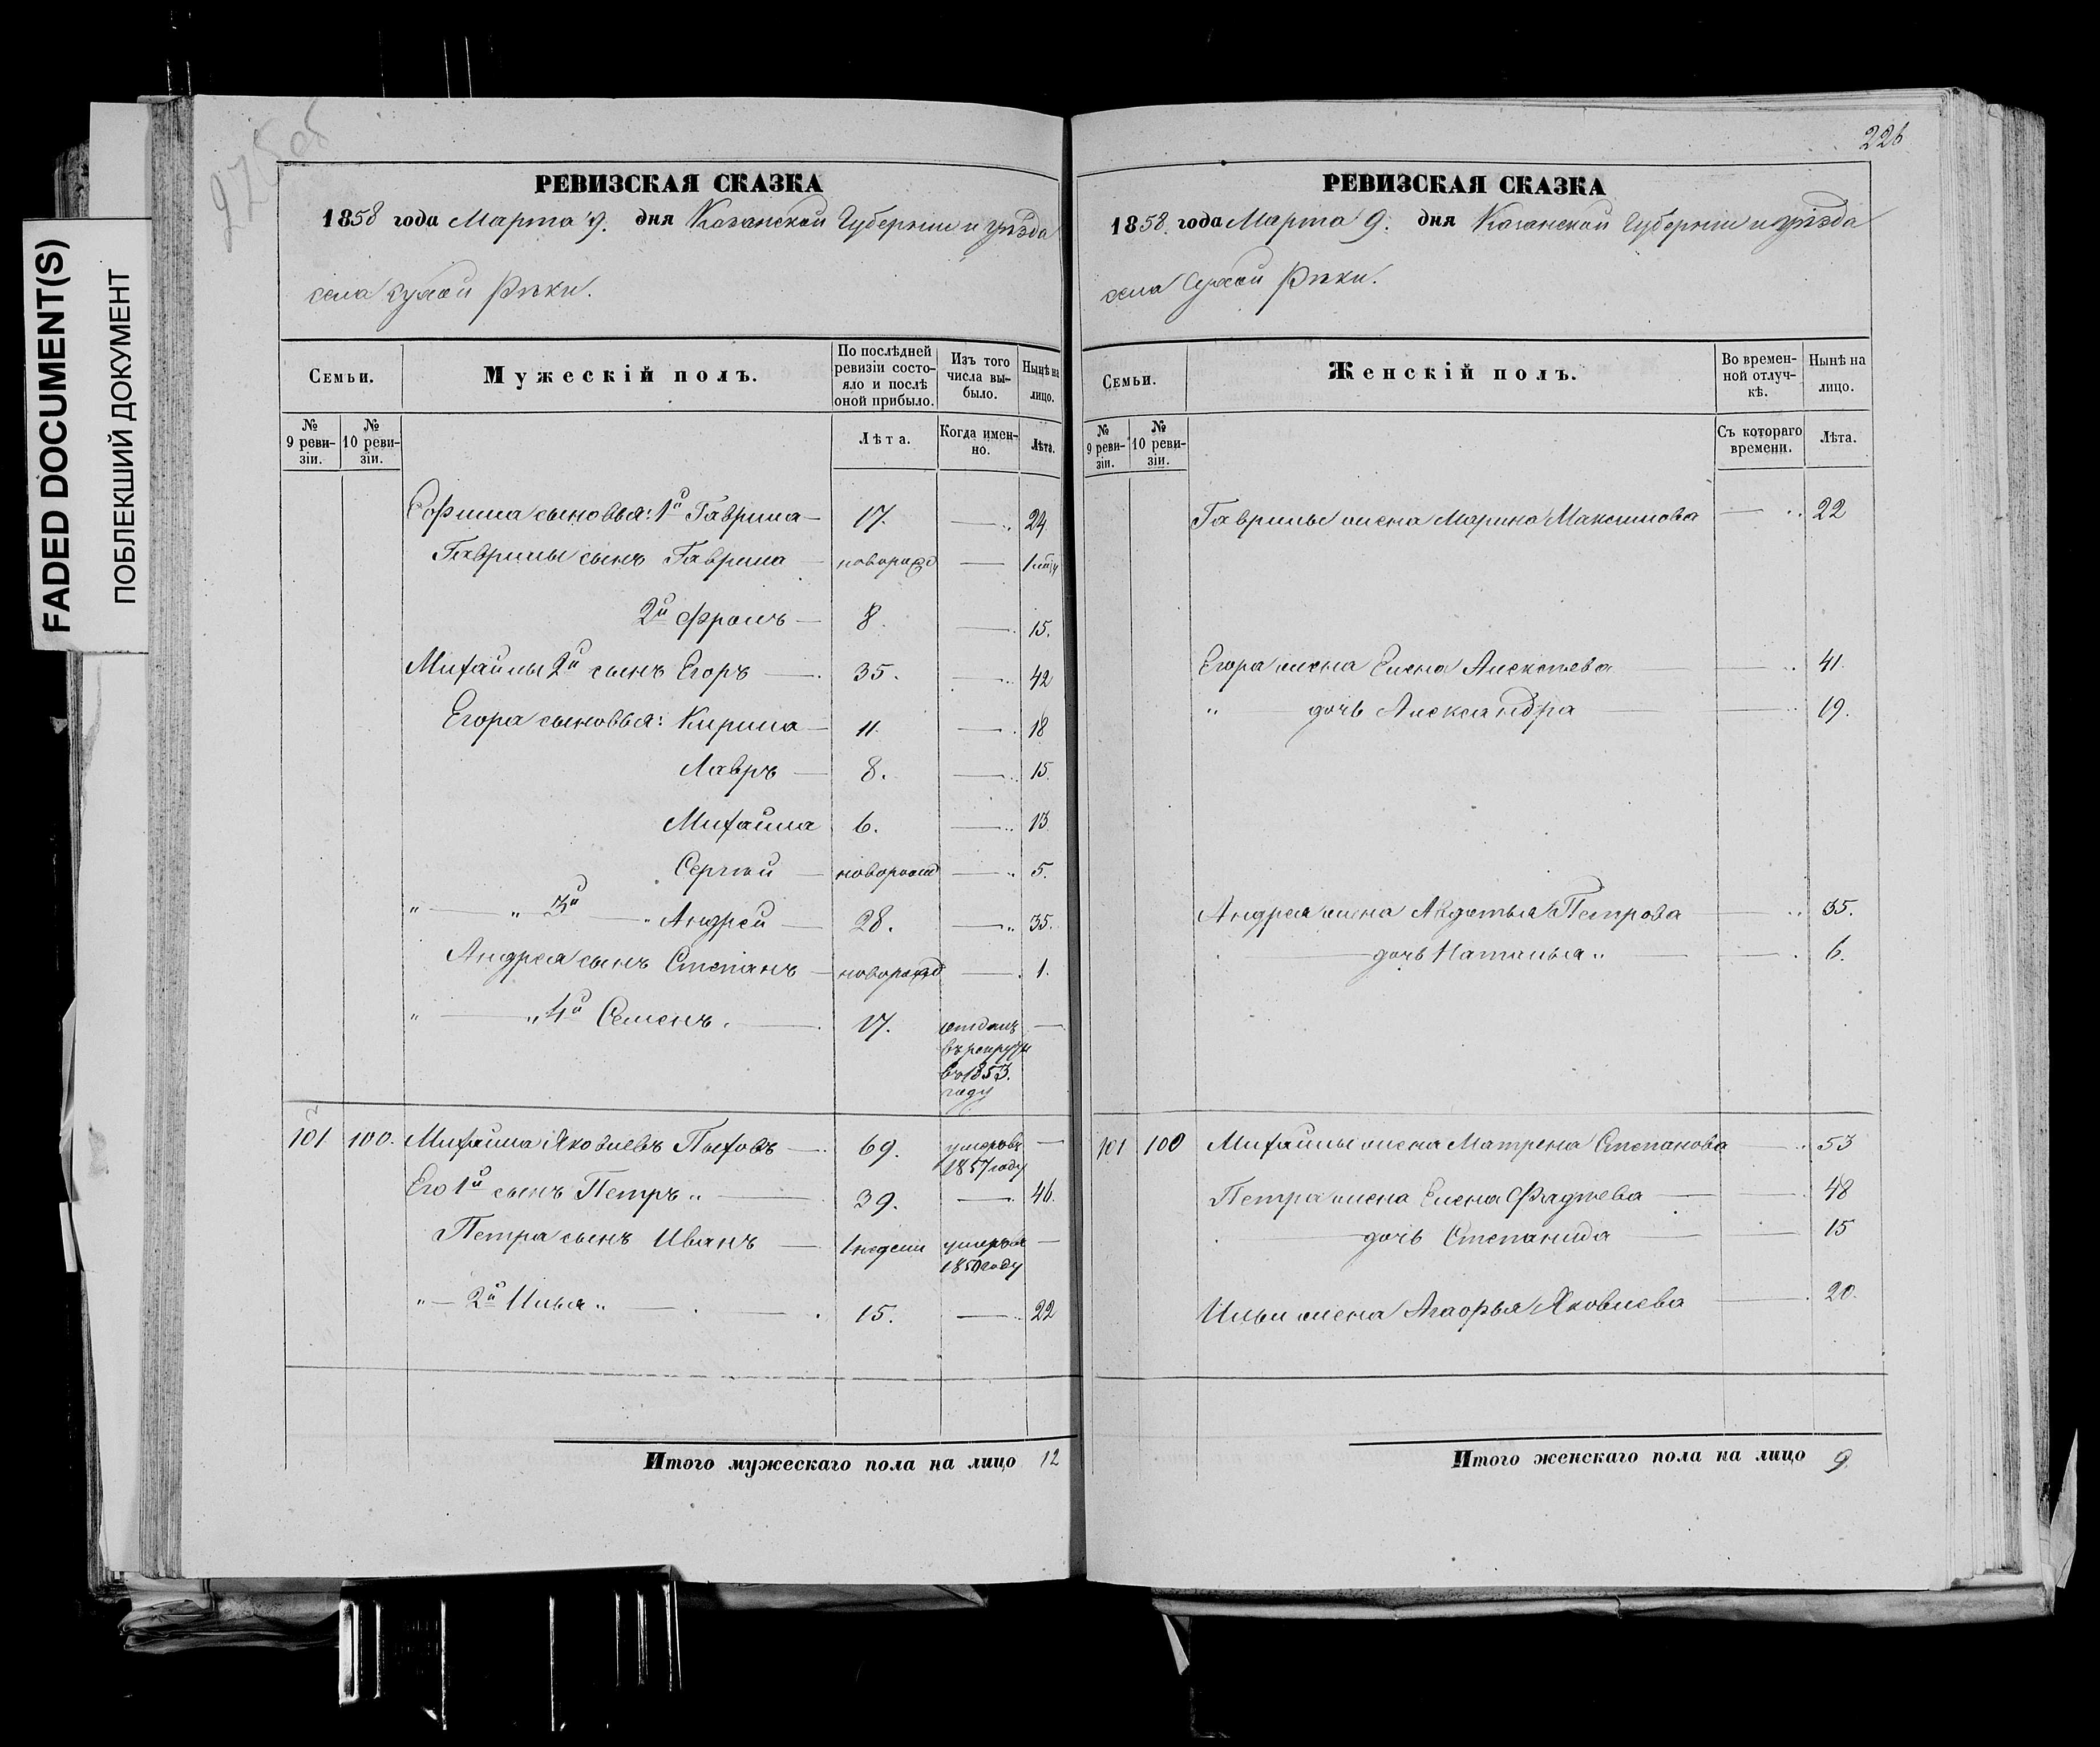 FADED DOCUMENT(S)
ПОБЛЕКШИЙ ДОКУМЕНТ
225 об
РЕВИЗСКАЯ СКАЗКА
1858 года Марта 9. дня Казанской Губернии и уѣзда
села Сухой Рѣки.
Семьи.
Мужескій полъ.
По послѣдней ревизіи состояло и послѣ оной прибыло.
Изъ того числа выбыло.
Нынѣ на лицо.
№ 9 ревизіи.
№ 10 ревизіи.
Лѣта.
Когда именно.
Лѣта.
Ефима сыновья: 1й Гаврила 17. 24
Гаврилы сынъ Гаврила новорожд 1
2й Фролъ 8. 15.
Михайлы 2й сынъ Егоръ 35. 42
Егора сыновья: Кирила 11. 18
Лавръ 8. 15.
Михайла 6. 13
Сергѣй новорожд 5.
" " 3й " Андрей 28. 35.
Андрея сынъ Степанъ новорожд 1.
" " 4й Семенъ. 17. отданъ
въ рекруты
въ 1853.
году
101 100. Михайла Яковлевъ 69. умеръ въ
1857 году
Его 1й сынъ Петръ " 39. 46.
Петра сынъ Иванъ 1 недели умеръ въ
1850 году
" 2й Илья " 15. 22
Итого мужескаго пола на лицо 12
226
РЕВИЗСКАЯ СКАЗКА
1858. года Марта 9. дня Казанской Губернии и уѣзда
села Сухой Рѣки.
Семьи.
Женскій полъ.
Во временной отлучкѣ.
Нынѣ на лицо.
№ 9 ревизіи.
№ 10 ревизіи.
Съ котораго времени.
Лѣта.
Гаврилы жена Марина Максимова 22
Егора жена Елена Алексѣева 41.
" дочь Александра 19.
Андрея жена Авдотья Петрова 35.
дочь Наталья " 6.
101 100 Михайлы жена Матрена Степанова 53
Петра жена Елена Фадѣева 48
дочь Степанида 15
Ильи жена Агафья Яковлева 20.
Итого женскаго пола на лицо 9